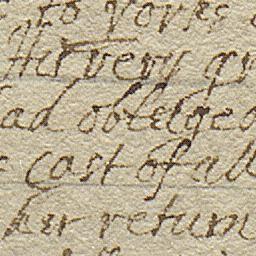 to yor
His very gr
ad obleiged
cost of all
her return